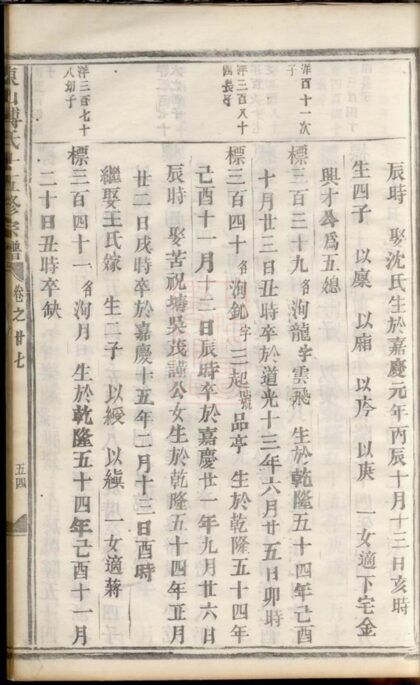 洋百十一次子
辰時 娶沈氏生於嘉慶元年丙辰十月十三日亥時
生四子 以廩 以廂 以庈 以庚 一女適下宅金
興才公爲五媳
標三百三十九名洵龍字雲飛 生於乾隆五十四年己酉
十月廿三日丑時卒於道光十三年六月廿五日卯時
洋三百八十四長子
標三百四十名洵釓字三起號品亭 生於乾隆五十四年
己酉十一月十三日辰時卒於嘉慶廿一年九月廿六日
辰時 娶苦祝塘吳茂謹公女生於乾隆五十四年正月
廿二日戌時卒於嘉慶十五年二月十三日酉時
繼娶王氏嫁 生二子 以綬 以縝 一女適蔣
洋三百七十八幼子
標三百四十一名洵月 生於乾隆五十四年己酉十一月
二十日丑時卒缺
東山 氏十五修宗譜 卷之廿七 五四